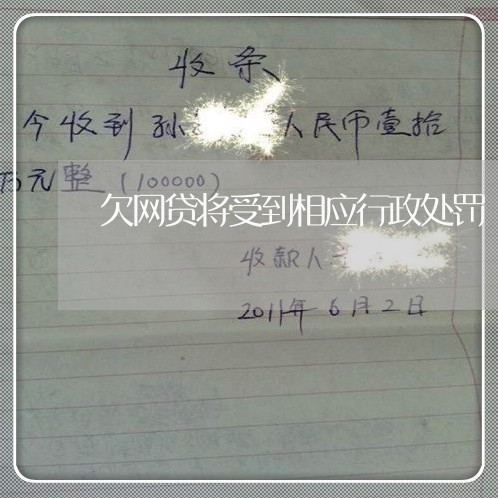 收条
今收到孙 人民币壹拾
万元整（100000）
欠网贷将受到相应行政处罚
收款人
2011年6月2日